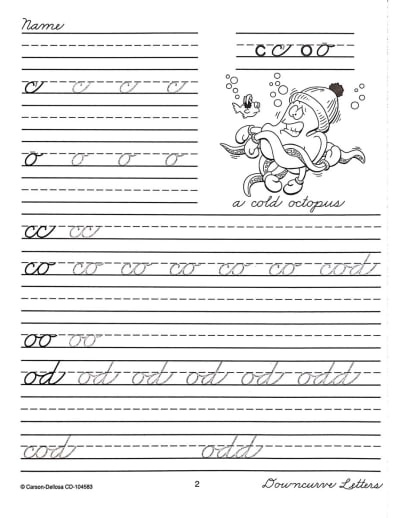 Name
c c o o
c c c c
o o o o
a cold octopus
cc cc
co co co co co co cod
oo oo
od od od od od odd
cod odd
© Carson-Dellosa CD-104583
2
Downcurve Letters